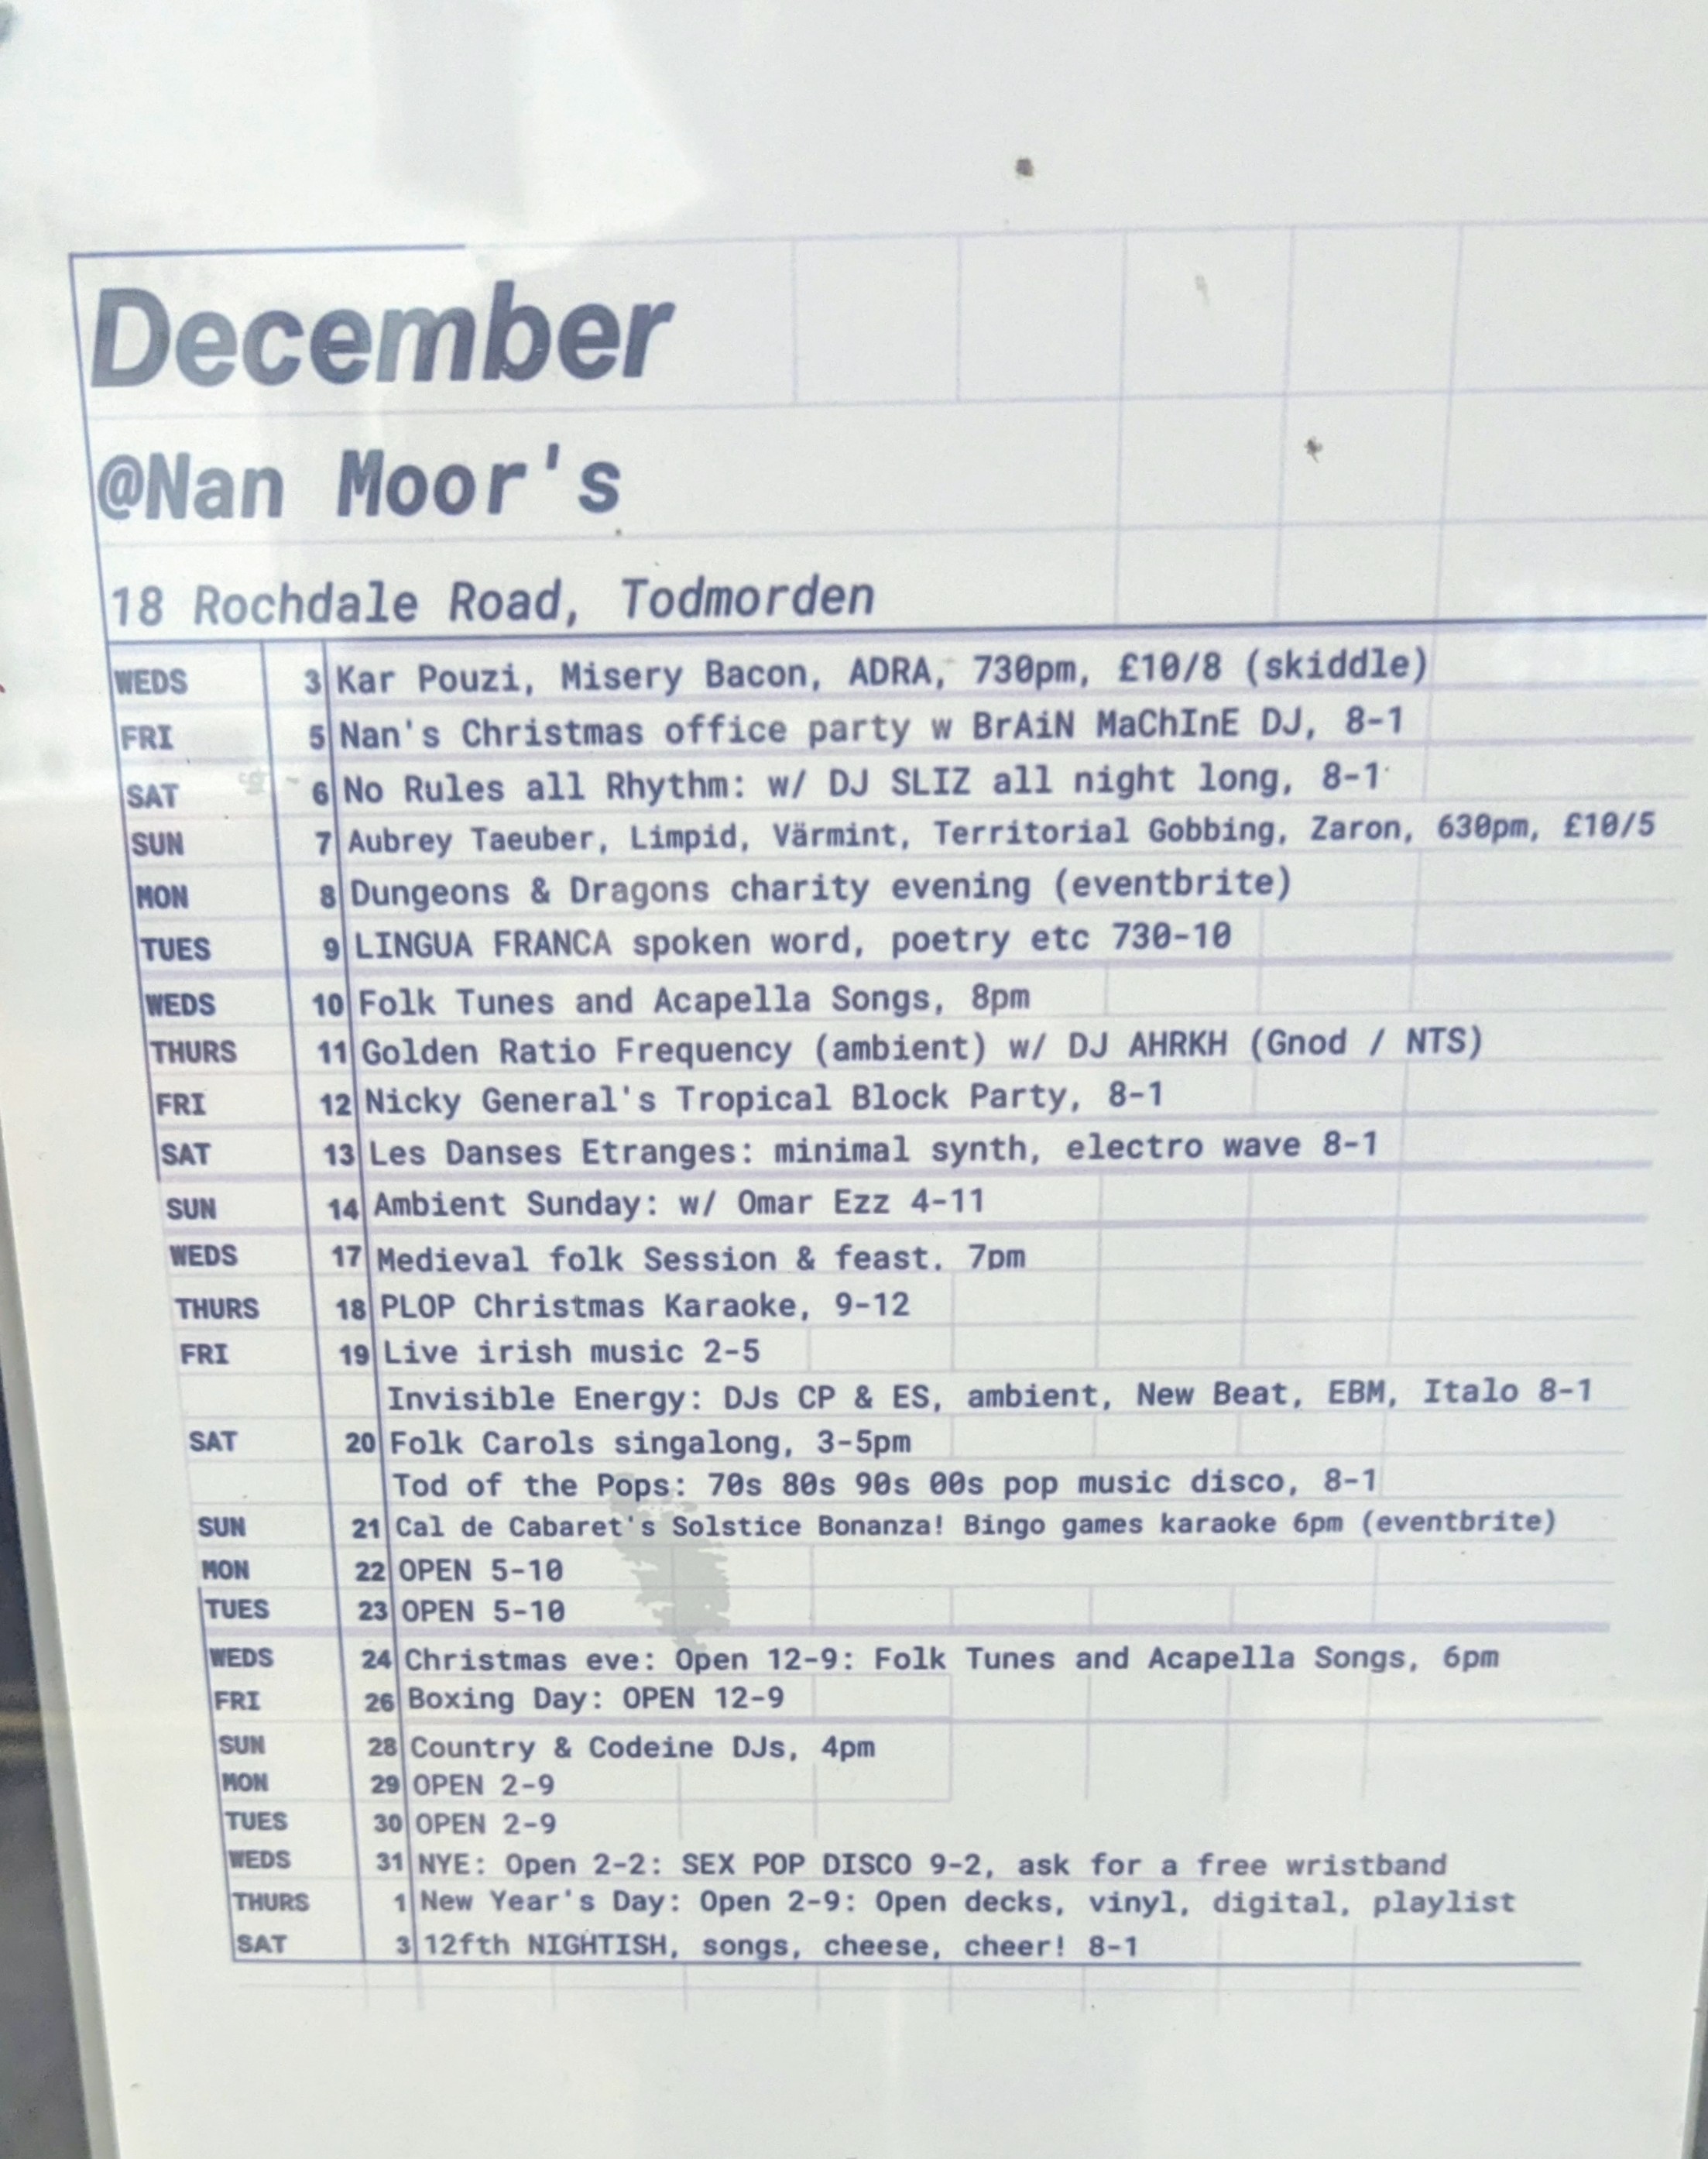 December
@Nan Moor's
18 Rochdale Road, Todmorden
WEDS 3 Kar Pouzi, Misery Bacon, ADRA, 730pm, £10/8 (skiddle)
FRI 5 Nan's Christmas office party w BrAiN MaChInE DJ, 8-1
SAT 6 No Rules all Rhythm: w/ DJ SLIZ all night long, 8-1
SUN 7 Aubrey Taeuber, Limpid, Värmint, Territorial Gobbing, Zaron, 630pm, £10/5
MON 8 Dungeons & Dragons charity evening (eventbrite)
TUES 9 LINGUA FRANCA spoken word, poetry etc 730-10
WEDS 10 Folk Tunes and Acapella Songs, 8pm
THURS 11 Golden Ratio Frequency (ambient) w/ DJ AHRKH (Gnod / NTS)
FRI 12 Nicky General's Tropical Block Party, 8-1
SAT 13 Les Danses Etranges: minimal synth, electro wave 8-1
SUN 14 Ambient Sunday: w/ Omar Ezz 4-11
WEDS 17 Medieval folk Session & feast. 7pm
THURS 18 PLOP Christmas Karaoke, 9-12
FRI 19 Live irish music 2-5
Invisible Energy: DJs CP & ES, ambient, New Beat, EBM, Italo 8-1
SAT 20 Folk Carols singalong, 3-5pm
Tod of the Pops: 70s 80s 90s 00s pop music disco, 8-1
SUN 21 Cal de Cabaret's Solstice Bonanza! Bingo games karaoke 6pm (eventbrite)
MON 22 OPEN 5-10
TUES 23 OPEN 5-10
WEDS 24 Christmas eve: Open 12-9: Folk Tunes and Acapella Songs, 6pm
FRI 26 Boxing Day: OPEN 12-9
SUN 28 Country & Codeine DJs, 4pm
MON 29 OPEN 2-9
TUES 30 OPEN 2-9
WEDS 31 NYE: Open 2-2: SEX POP DISCO 9-2, ask for a free wristband
THURS 1 New Year's Day: Open 2-9: Open decks, vinyl, digital, playlist
SAT 3 12fth NIGHTISH, songs, cheese, cheer! 8-1